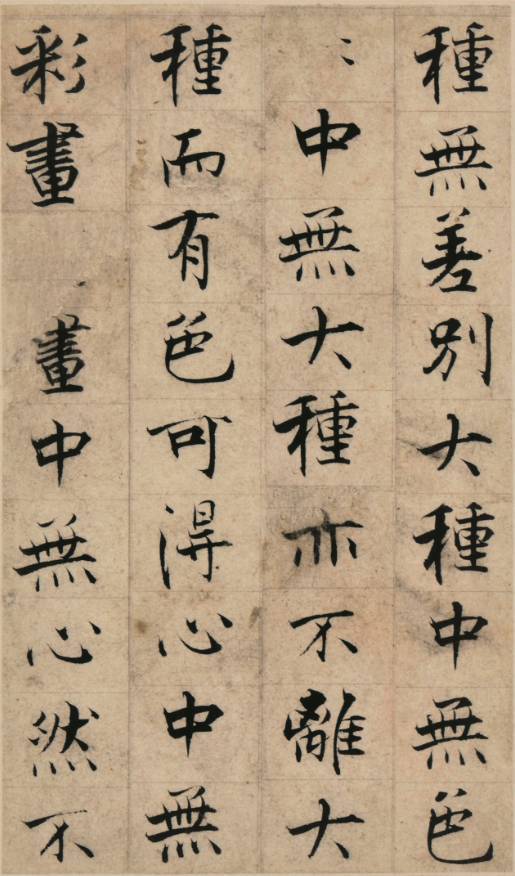 種無差別大種中無色
〻中無大種亦不離大
種而有色可得心中無
彩畫畫中無心然不